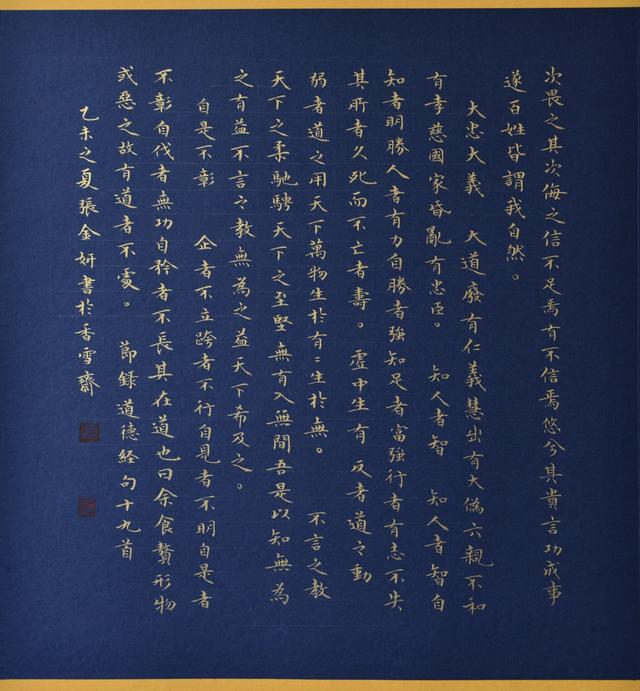 次畏之其次侮之信不足焉有不信焉悠兮其貴言功成事
遂百姓皆謂我自然。
大忠大義 大道廢有仁義慧出有大偽六親不和
有孝慈國家昏亂有忠臣。 知人者智 知人者智自
知者明勝人者有力自勝者強知足者富強行者有志不失
其所者久死而不亡者壽。 虛中生有 反者道之動
弱者道之用天下萬物生於有=生於無。 不言之教
天下之柔馳騁天下之至堅無有入無間吾是以知無為
之有益不言之教無為之益天下希及之。
自是不彰 企者不立跨者不行自見者不明自是者
不彰自伐者無功自矜者不長其在道也曰余食贅形物
或惡之故有道者不處。 節錄道德經句十九首
乙未之夏張金妍書於香雪齋